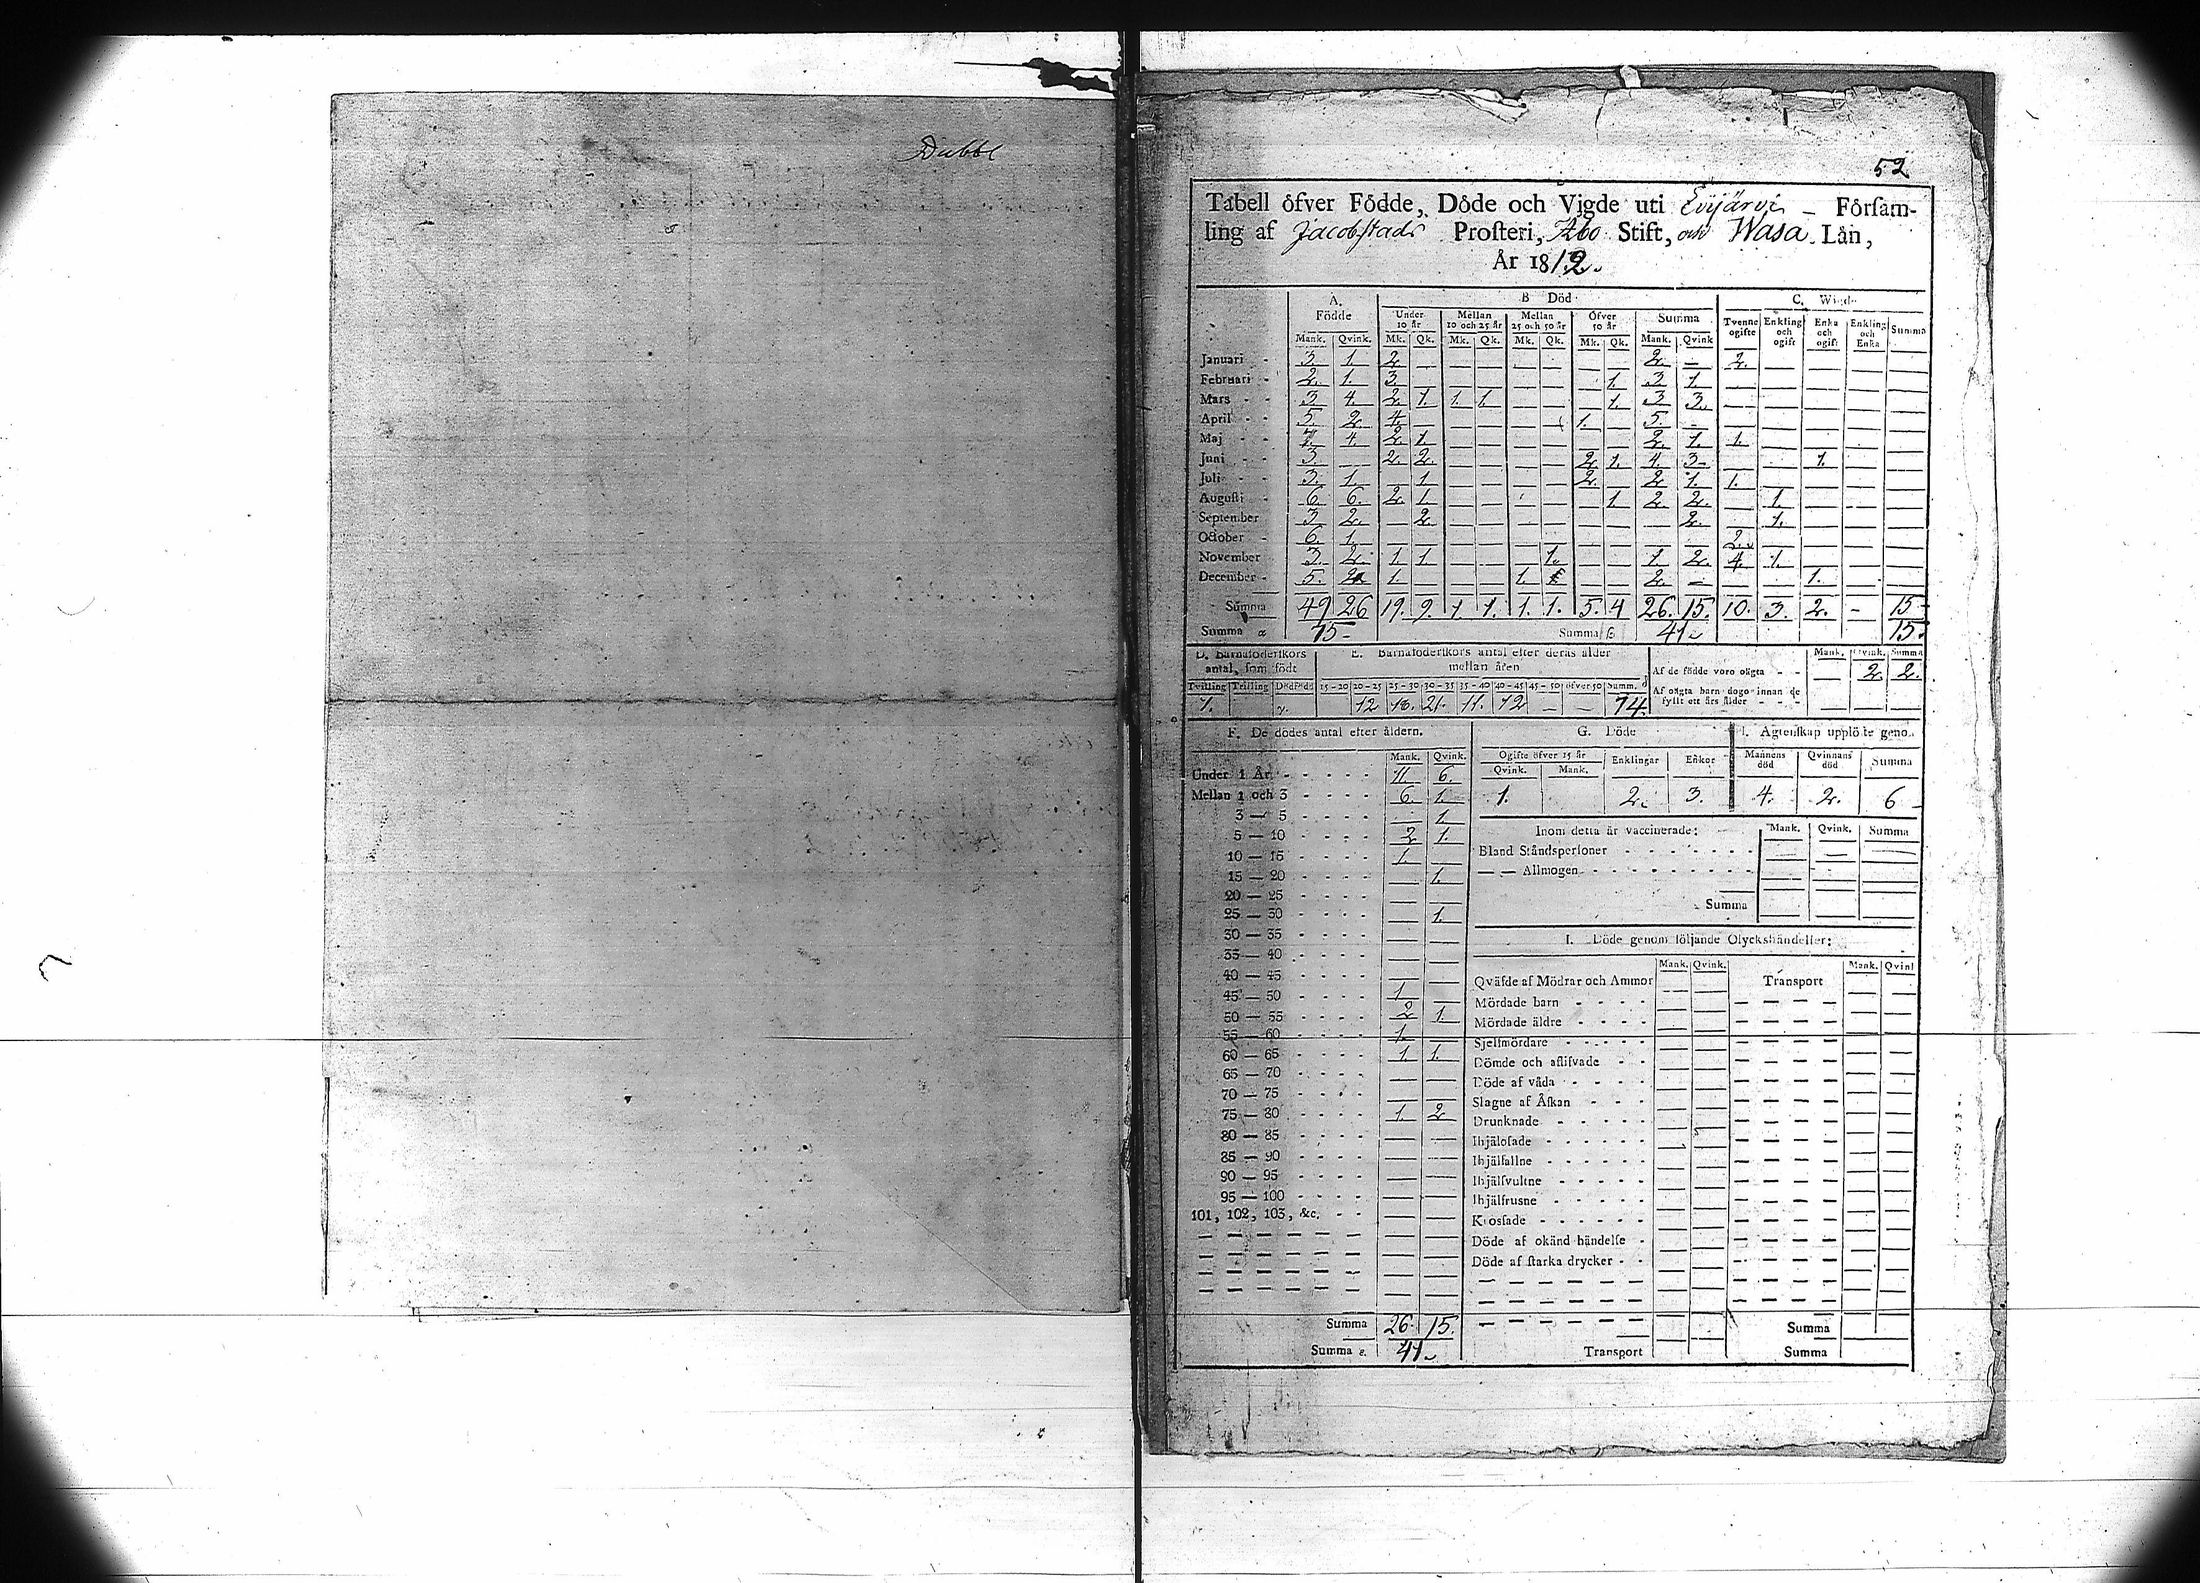 Dubbl
52
Tabell öfver Födde, Döde och Vigde uti Evijärvi – Försam-
ling af Jacobstads Prosteri, Åbo Stift, och Wasa Län,
År 1812.
A. Födde B Död C. Wigde
Under 10 år Mellan 10 och 25 år Mellan 25 och 50 år Öfver 50 år Summa Tvenne ogifte Enkling och ogift Enka och ogift Enkling och Enka Summa
Mank. Qvink. Mk. Qk. Mk. Qk. Mk. Qk. Mk. Qk. Mank. Qvink
Januari - 3. 1. 2. — — — — — — — 2. — 2. — — — —
Februari - 2. 1. 3. — — — — — — 1. 3. 1. — — — — —
Mars - - 3. 4. 2. 1. 1. 1. — — — 1. 3. 3. — — — — —
April - - 5. 2. 4. — — — — — 1. — 5. — — — — — —
Maj - - 7. 4. 2. 1. — — — — — — 2. 1. 1. — — — —
Juni - - 3. — 2. 2. — — — — 2. 1. 4. 3. — — 1. — —
Juli - - 3. 1. — 1. — — — — 2. — 2. 1. 1. — — — —
Augusti - 6. 6. 2. 1. — — — — — 1. 2. 2. — 1. — — —
September 3. 2. — 2. — — — — — — — 2. — 1. — — —
October - 6. 1. — — — — — — — — — — 2. — — — —
November 3. 2. 1. 1. — — — 1. — — 1. 2. 4. 1. — — —
December - 5. 2. 1. — — — 1. — — — 2. — — — 1. — —
Summa 49 26 19. 9. 1. 1. 1. 1. 5. 4 26. 15. 10. 3. 2. – 15.
Summa α 75 Summa β 41. 15.
D. Barnaföderskors antal, som födt E. Barnaföderskors antal efter deras ålder mellan åren Mank. Qvink. Summa
Tvilling Trilling Dödfödd 15-20 20-25 25-30 30-35 35-40 40-45 45-50 öfver 50 Summ. Af de födde voro oägta - - — 2. 2.
1. 12 18. 21. 11. 12 — — 74. Af oägta barn dogo innan de fyllt ett års ålder - - - — — —
F. De dödes antal efter åldern. G. Döde Ägtenskap upplöste geno.
Mank. Qvink. Ogifte öfver 15 år Enklingar Enkor Mannens död Qvinnans död Summa
Qvink. Mank.
1. 2. 3. 4. 2. 6
Under 1 År - - - - - 11. 6.
Mellan 1 och 3 - - - - 6. 1.
3 — 5 - - - - — 1.
5 — 10 - - - - 2 1.
10 — 15 - - - - 1. —
15 — 20 - - - - — 1.
20 — 25 - - - - — —
25 — 30 - - - - — 1.
30 — 35 - - - - — —
35 — 40 - - - - — —
40 — 45 - - - - — —
45 — 50 - - - - 1 —
50 — 55 - - - - 2 1.
55 — 60 - - - - 1. —
60 — 65 - - - - 1. 1.
65 — 70 - - - - — —
70 — 75 - - - - — —
75 — 80 - - - - 1. 2
80 — 85 - - - - — —
85 — 90 - - - - — —
90 — 95 - - - - — —
95 — 100 - - - - — —
101, 102, 103, &c. - - — —
Summa 26. 15.
Summa ε. 41.
Inom detta år vaccinerade: Mank. Qvink. Summa
Bland Ståndspersoner - - - - - - - — — —
— — Allmogen - - - - - - - - — — —
Summa — — —
I. Döde genom följande Olyckshändelser:
Mank. Qvink. Mank. Qvink
Qväfde af Mödrar och Ammor — — Transport — —
Mördade barn - - - -
Mördade äldre - - - -
Sjelfmördare - - - - -
Dömde och aflifvade - -
Döde af våda - - - -
Slagne af Åskan - - -
Drunknade - - - - -
Ihjälosade - - - - -
Ihjälfallne - - - - - -
Ihjälsvultne - - - - -
Ihjälfrusne - - - - -
Krossade - - - - - -
Döde af okänd händelse -
Döde af starka drycker - -
Summa
Transport Summa